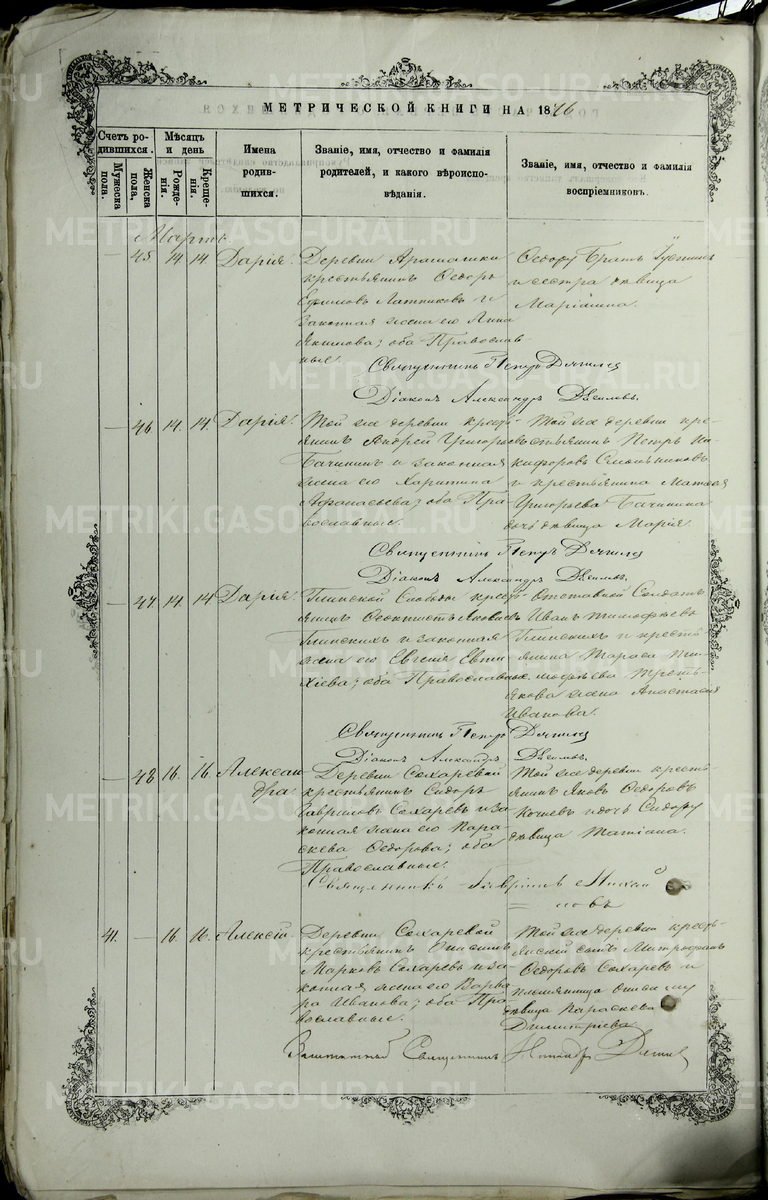 МЕТРИЧЕСКОЙ КНИГИ НА 1876
Счетъ ро-
дившихся.
Мужеска
пола.
Женска
пола,
Мѣсяцъ
и день
Рожде-
нія.
Креще-
нія.
Имена
родив-
шихся.
Званіе, имя, отчество и фамилія
родителей, и какого вѣроиспо-
вѣданія.
Званіе, имя, отчество и фамилія
воспріемниковъ.
Мартъ.
— 45. 14. 14 Дарія.
Деревни Арамашки
крестьянинъ Ѳедоръ
Ефимовъ Латниковъ и
законная жена его Анна
Якимова; оба Православ-
ные.
Ѳедору братъ
и сестра дѣвица
Священникъ Петръ
Діаконъ Александръ
— 46. 14. 14. Дарія.
Той же деревни кресть-
янинъ Андрей Григорьевъ
Бачининъ и законная
жена его Харитина
Афанасьева; оба Пра-
вославные.
Той же деревни кре-
стьянинъ Петръ Ни-
кифоровъ
и крестьянина Матвея
Григорьева Бачинина
дочь дѣвица Марія.
Священникъ Петръ
Діаконъ Александръ
— 47. 14. 14 Дарія.
Глинской Слободы кресть-
янинъ Ѳеоктистъ Яковлевъ
Глинскихъ и законная
жена его Евгенія Евти-
хіева; оба Православные.
Отставной Солдатъ
Иванъ Тимофѣевъ
Глинскихъ и кресть-
янина Тараса Ти-
мофѣева Треть-
якова жена Анастасія
Иванова.
Священникъ Петръ
Діаконъ Александръ
— 48 16. 16. Алексан-
дра.
Деревни Сохаревой
крестьянинъ Сидоръ
Гавриловъ Сохаревъ и за-
конная жена его Пара-
скева Ѳедорова; оба
Православные.
Той же деревни кресть-
янинъ Яковъ Ѳедоровъ
Кошевъ и дочь Сидору
дѣвица Татіана.
Священникъ Гавріилъ
41. — 16. 16. Алексій.
Деревни Сохаревой
крестьянинъ
Марковъ Сохаревъ и за-
конная жена его Варва-
ра Иванова; оба Пра-
вославные.
Той же деревни кресть-
янскій сынъ Митрофанъ
Ѳедоровъ Сохаревъ и
племянница
дѣвица Параскева
Димитріева
Заштатный Священникъ
METRIKI.GASO-URAL.RU